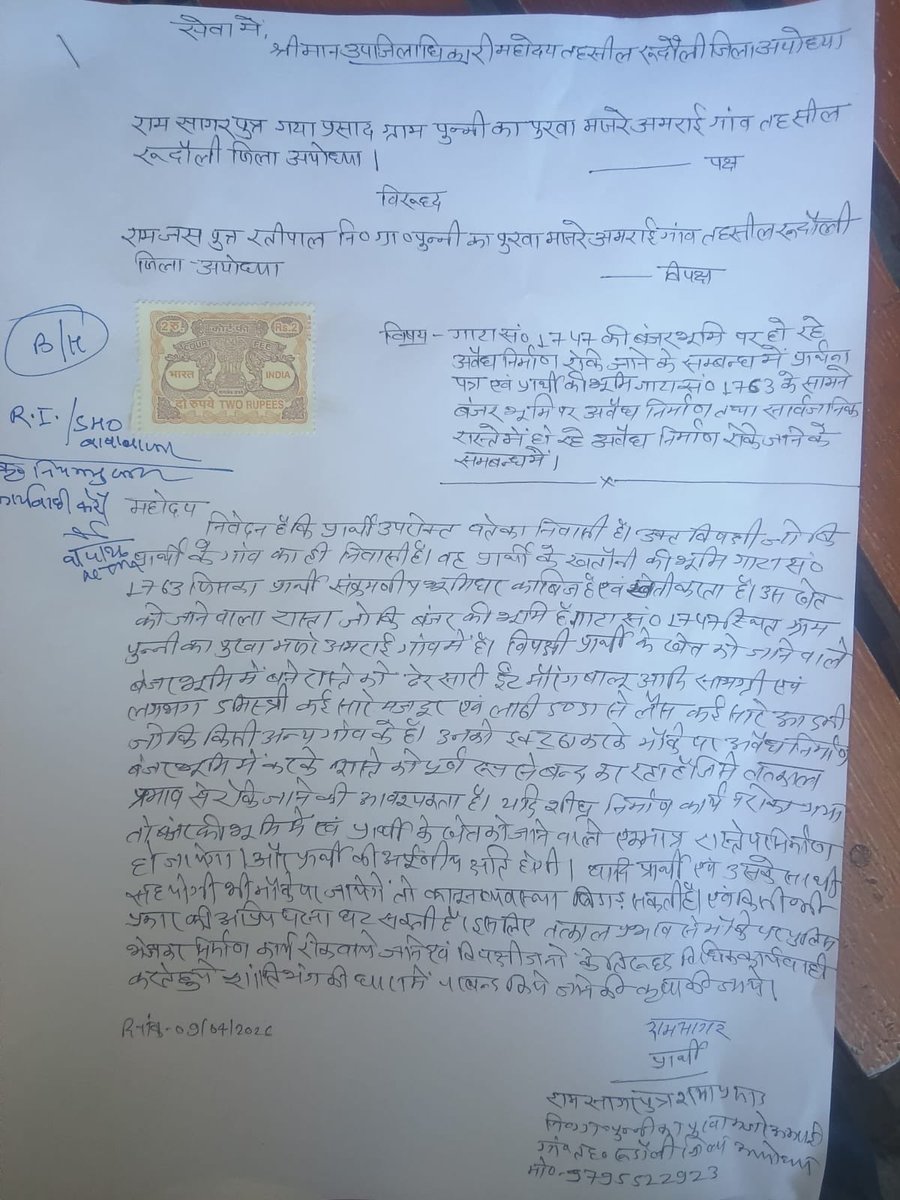 सेवा में,
श्रीमान उपजिलाधिकारी महोदय तहसील रूदौली जिला अयोध्या
राम सागर पुत्र गया प्रसाद ग्राम पुन्नी का पुरवा मजरे अमराई गांव तहसील
रूदौली जिला अयोध्या।
——— पक्ष
विरूद्ध
रामजस पुत्र रतीपाल नि० ग्रा० पुन्नी का पुरवा मजरे अमराई गांव तहसील रूदौली
जिला-अयोध्या
—— विपक्ष
2 रु. कोर्ट फी Rs.2
COURT FEE
भारत INDIA
दो रुपये TWO RUPEES
B/H
R.I./SHO
कार्यवाही करें
विषय - गाटा सं० 1747 की बंजर भूमि पर हो रहे
अवैध निर्माण रोके जाने के सम्बन्ध में प्रार्थना
पत्र एवं प्रार्थी की भूमि गाटा सं० 1763 के सामने
बंजर भूमि पर अवैध निर्माण तथा सार्वजनिक
रास्ते में हो रहे अवैध निर्माण रोके जाने के
सम्बन्ध में।
महोदय
निवेदन है कि प्रार्थी उपरोक्त पते का निवासी है। उक्त विपक्षी जो कि
प्रार्थी के गांव का ही निवासी है। वह प्रार्थी के खतौनी की भूमि गाटा सं०
1763 जिसका प्रार्थी संक्रमणीय भूमिधर काबिज है एवं खेती करता है। उस खेत
को जाने वाला रास्ता जो कि बंजर की भूमि है। गाटा सं० 1747 स्थित ग्राम
पुन्नी का पुरवा मजरे अमराई गांव में है। विपक्षी प्रार्थी के खेत को जाने वाले
बंजर भूमि में बने रास्ते को ढेर सारी ईंट मौरंग बालू आदि सामग्री एवं
लगभग 5 मिस्त्री कई सारे मजदूर एवं लाठी डण्डा से लैस कई सारे आदमी
जो कि किसी अन्य गांव के है। उनको इकट्ठा करके मौके पर अवैध निर्माण
बंजर भूमि में करके रास्ते को पूर्ण रूप से बन्द कर रहा है जिसे तत्काल
प्रभाव से रोके जाने की आवश्यकता है। यदि शीघ्र निर्माण कार्य न रोका गया
तो बंजर की भूमि में एवं प्रार्थी के खेत को जाने वाले एकमात्र रास्ते पर निर्माण
हो जायेगा। और प्रार्थी की अपूर्णीय क्षति होगी। यदि प्रार्थी एवं उसके साथी
सहयोगी भी मौके पर जायेगें तो कानून व्यवस्था बिगड़ सकती है। एवं किसी भी
प्रकार की अप्रिय घटना घट सकती है। इसलिए तत्काल प्रभाव से मौके पर पुलिस
भेजकर निर्माण कार्य रोकवाये जाने एवं विपक्षीजनों के विरूद्ध विधिक कार्यवाही
करते हुये शांतिभंग की धारा में पाबन्द किये जाने की कृपा की जाये।
दिनांक-09/04/2026
रामसागर
प्रार्थी
राम सागर पुत्र गया प्रसाद
नि० ग्रा० पुन्नी का पुरवा मजरे अमराई
गांव तह० रूदौली जिला अयोध्या
मो०-9795522923